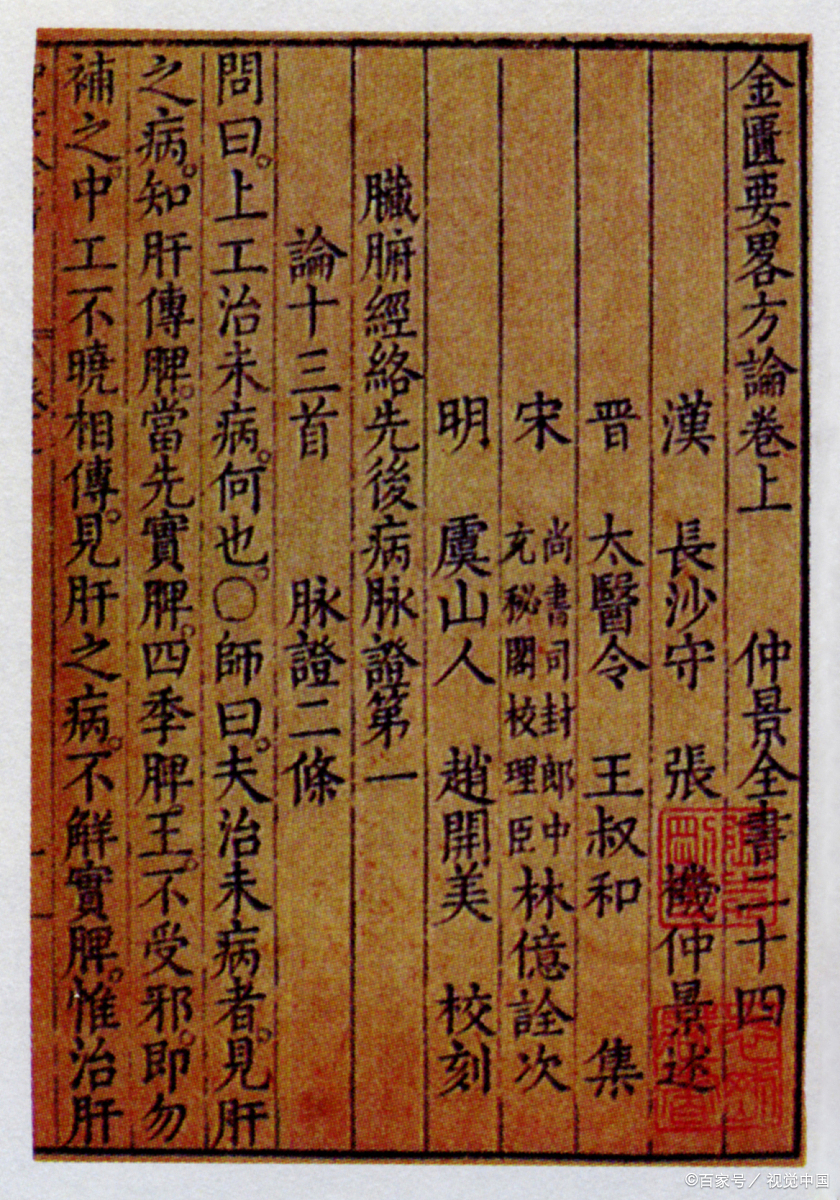 金匱要畧方論卷上 仲景全書二十四
漢 長沙守 張 機仲景述
晋 太醫令 王叔和 集
宋 尚書司封郎中充秘閣校理臣 林億詮次
明 虞山人 趙開美 校刻
臟腑經絡先後病脉證第一
論十三首 脉證二條
問曰。上工治未病。何也。○師曰。夫治未病者。見肝
之病。知肝傳脾。當先實脾。四季脾王。不受邪。即勿
補之。中工不曉相傳。見肝之病。不解實脾。惟治肝
©百家号／视觉中国